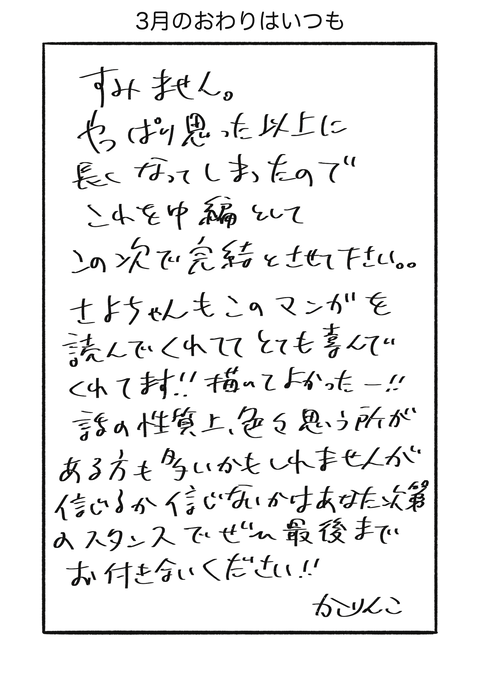 3月のおわりはいつも
すみません。
やっぱり思った以上に
長くなってしまったので
これを中編として
この次で完結とさせて下さい。。
さよちゃんもこのマンガを
読んでくれてて とても喜んで
くれてます!! 描いてよかったー!!
話の性質上、色々思う所が
ある方も多いかもしれませんが
信じるか信じないかはあなた次第
のスタンスでぜひ最後まで
お付き合いください!!
かこりんこ